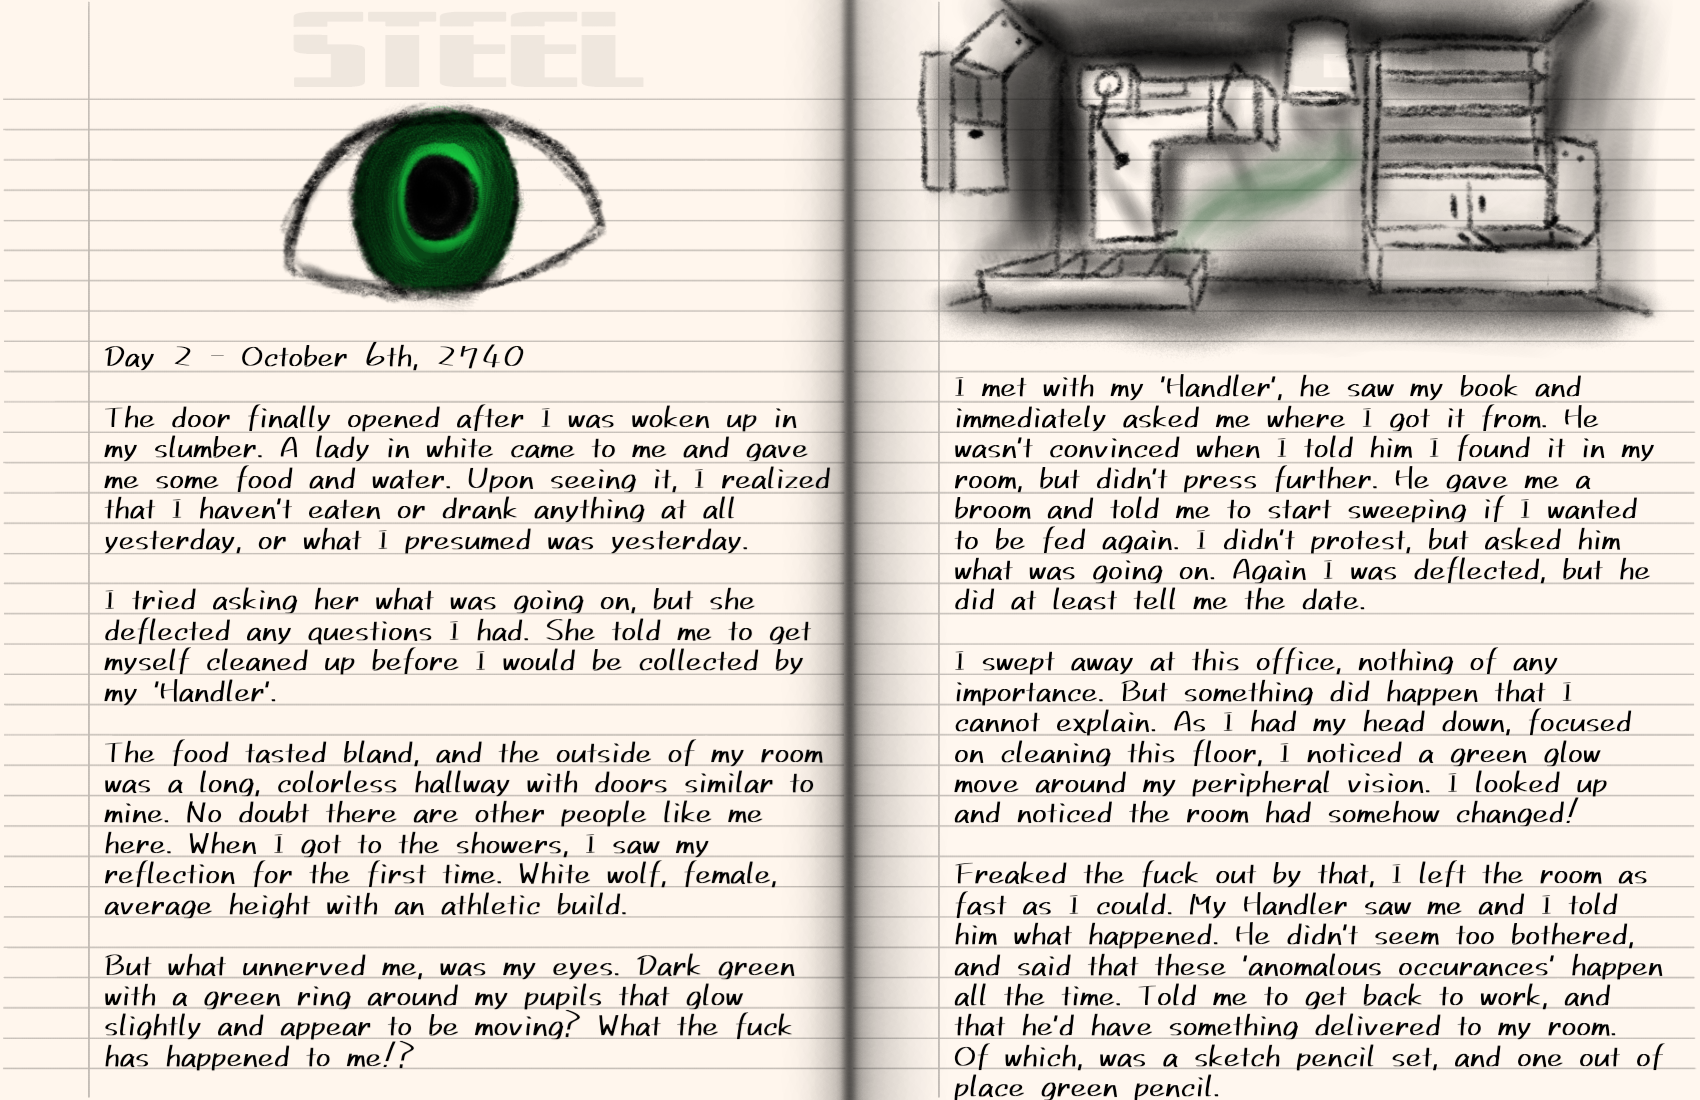 STEEL
Day 2 - October 6th, 2740
The door finally opened after I was woken up in
my slumber. A lady in white came to me and gave
me some food and water. Upon seeing it, I realized
that I haven't eaten or drank anything at all
yesterday, or what I presumed was yesterday.
I tried asking her what was going on, but she
deflected any questions I had. She told me to get
myself cleaned up before I would be collected by
my 'Handler'.
The food tasted bland, and the outside of my room
was a long, colorless hallway with doors similar to
mine. No doubt there are other people like me
here. When I got to the showers, I saw my
reflection for the first time. White wolf, female,
average height with an athletic build.
But what unnerved me, was my eyes. Dark green
with a green ring around my pupils that glow
slightly and appear to be moving? What the fuck
has happened to me!?
I met with my 'Handler', he saw my book and
immediately asked me where I got it from. He
wasn't convinced when I told him I found it in my
room, but didn't press further. He gave me a
broom and told me to start sweeping if I wanted
to be fed again. I didn't protest, but asked him
what was going on. Again I was deflected, but he
did at least tell me the date.
I swept away at this office, nothing of any
importance. But something did happen that I
cannot explain. As I had my head down, focused
on cleaning this floor, I noticed a green glow
move around my peripheral vision. I looked up
and noticed the room had somehow changed!
Freaked the fuck out by that, I left the room as
fast as I could. My Handler saw me and I told
him what happened. He didn't seem too bothered,
and said that these 'anomalous occurances' happen
all the time. Told me to get back to work, and
that he'd have something delivered to my room.
Of which, was a sketch pencil set, and one out of
place green pencil.